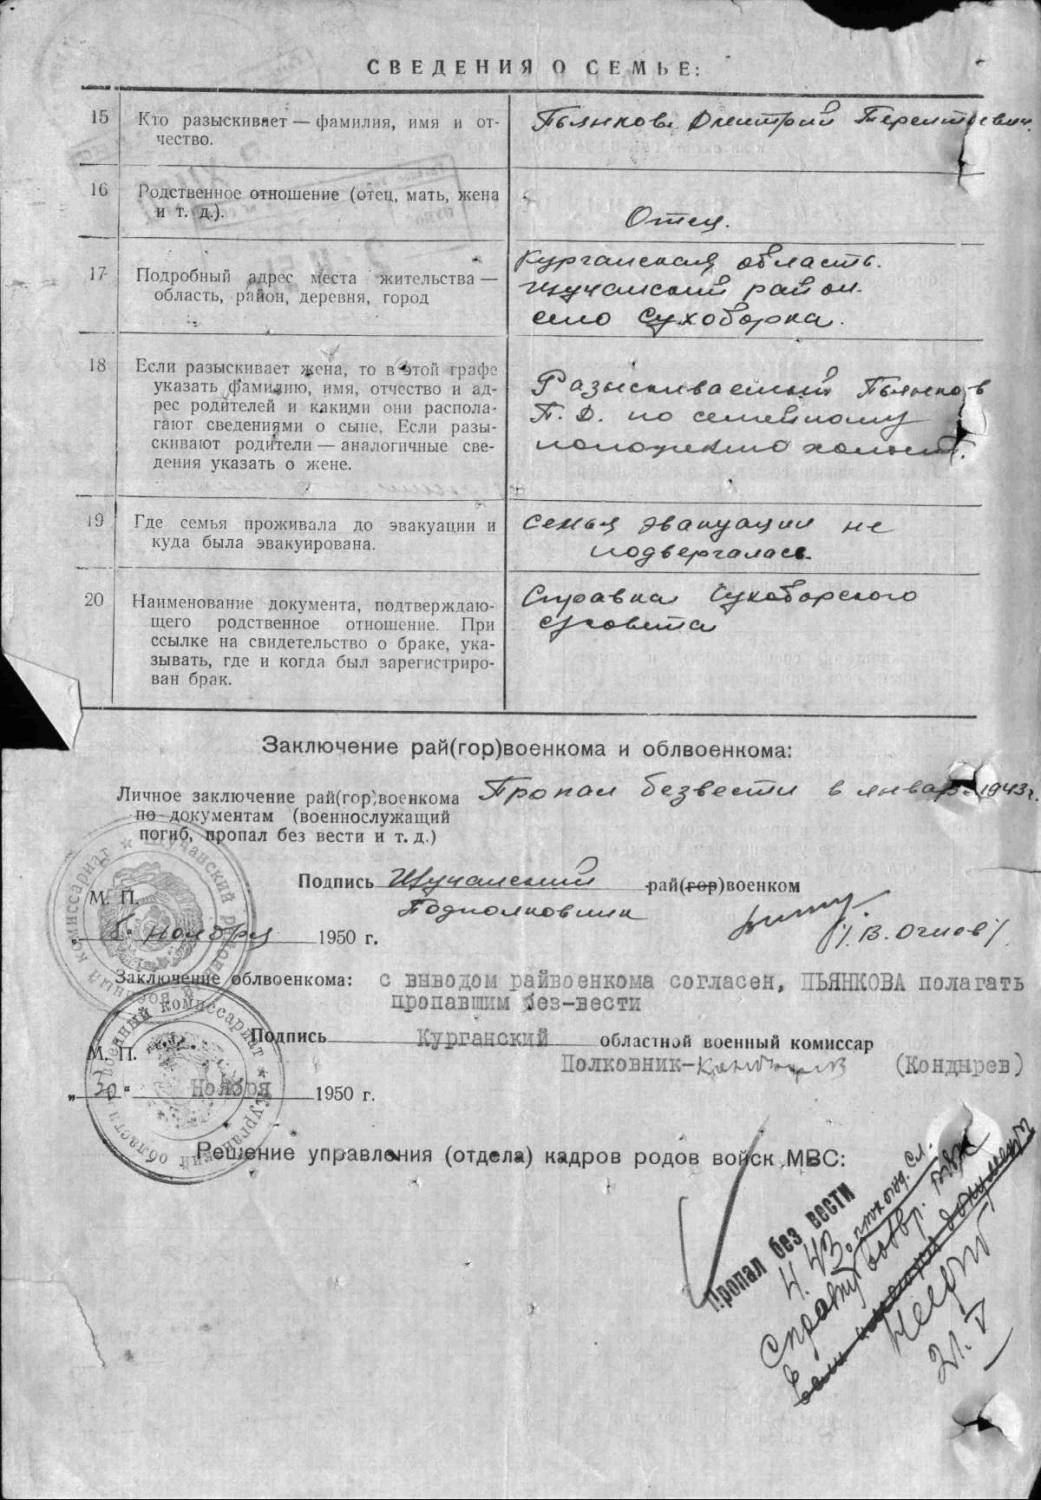 СВЕДЕНИЯ О СЕМЬЕ:
15 Кто разыскивает — фамилия, имя и от-
чество.
Пьянков Дмитрий Терентьевич.
16 Родственное отношение (отец, мать, жена
и т. д.).
Отец.
17 Подробный адрес места жительства —
область, район, деревня, город
Курганская область.
Щучанский район.
село Сухоборка.
18 Если разыскивает жена, то в этой графе
указать фамилию, имя, отчество и ад-
рес родителей и какими они распола-
гают сведениями о сыне. Если разы-
скивают родители — аналогичные све-
дения указать о жене.
Разыскиваемый Пьянков
П. Д. по семейному
положению холост.
19 Где семья проживала до эвакуации и
куда была эвакуирована.
Семья эвакуации не
подвергалась.
20 Наименование документа, подтверждаю-
щего родственное отношение. При
ссылке на свидетельство о браке, ука-
зывать, где и когда был зарегистриро-
ван брак.
Справка Сухоборского
с/совета
Заключение рай(гор)военкома и облвоенкома:
Личное заключение рай(гор)военкома
по документам (военнослужащий
погиб, пропал без вести и т. д.)
Пропал безвести в январе 1943 г.
Подпись Щучанский рай(гор)военком
М. П.
Подполковник
ноября 1950 г.
Заключение облвоенкома: с выводом райвоенкома согласен, ПЬЯНКОВА полагать
пропавшим без-вести
Подпись Курганский областной военный комиссар
М. П.
Полковник- (Кондырев)
„30“ Ноября 1950 г.
Решение управления (отдела) кадров родов войск МВС:
Пропал без вести
4.43.
21.V